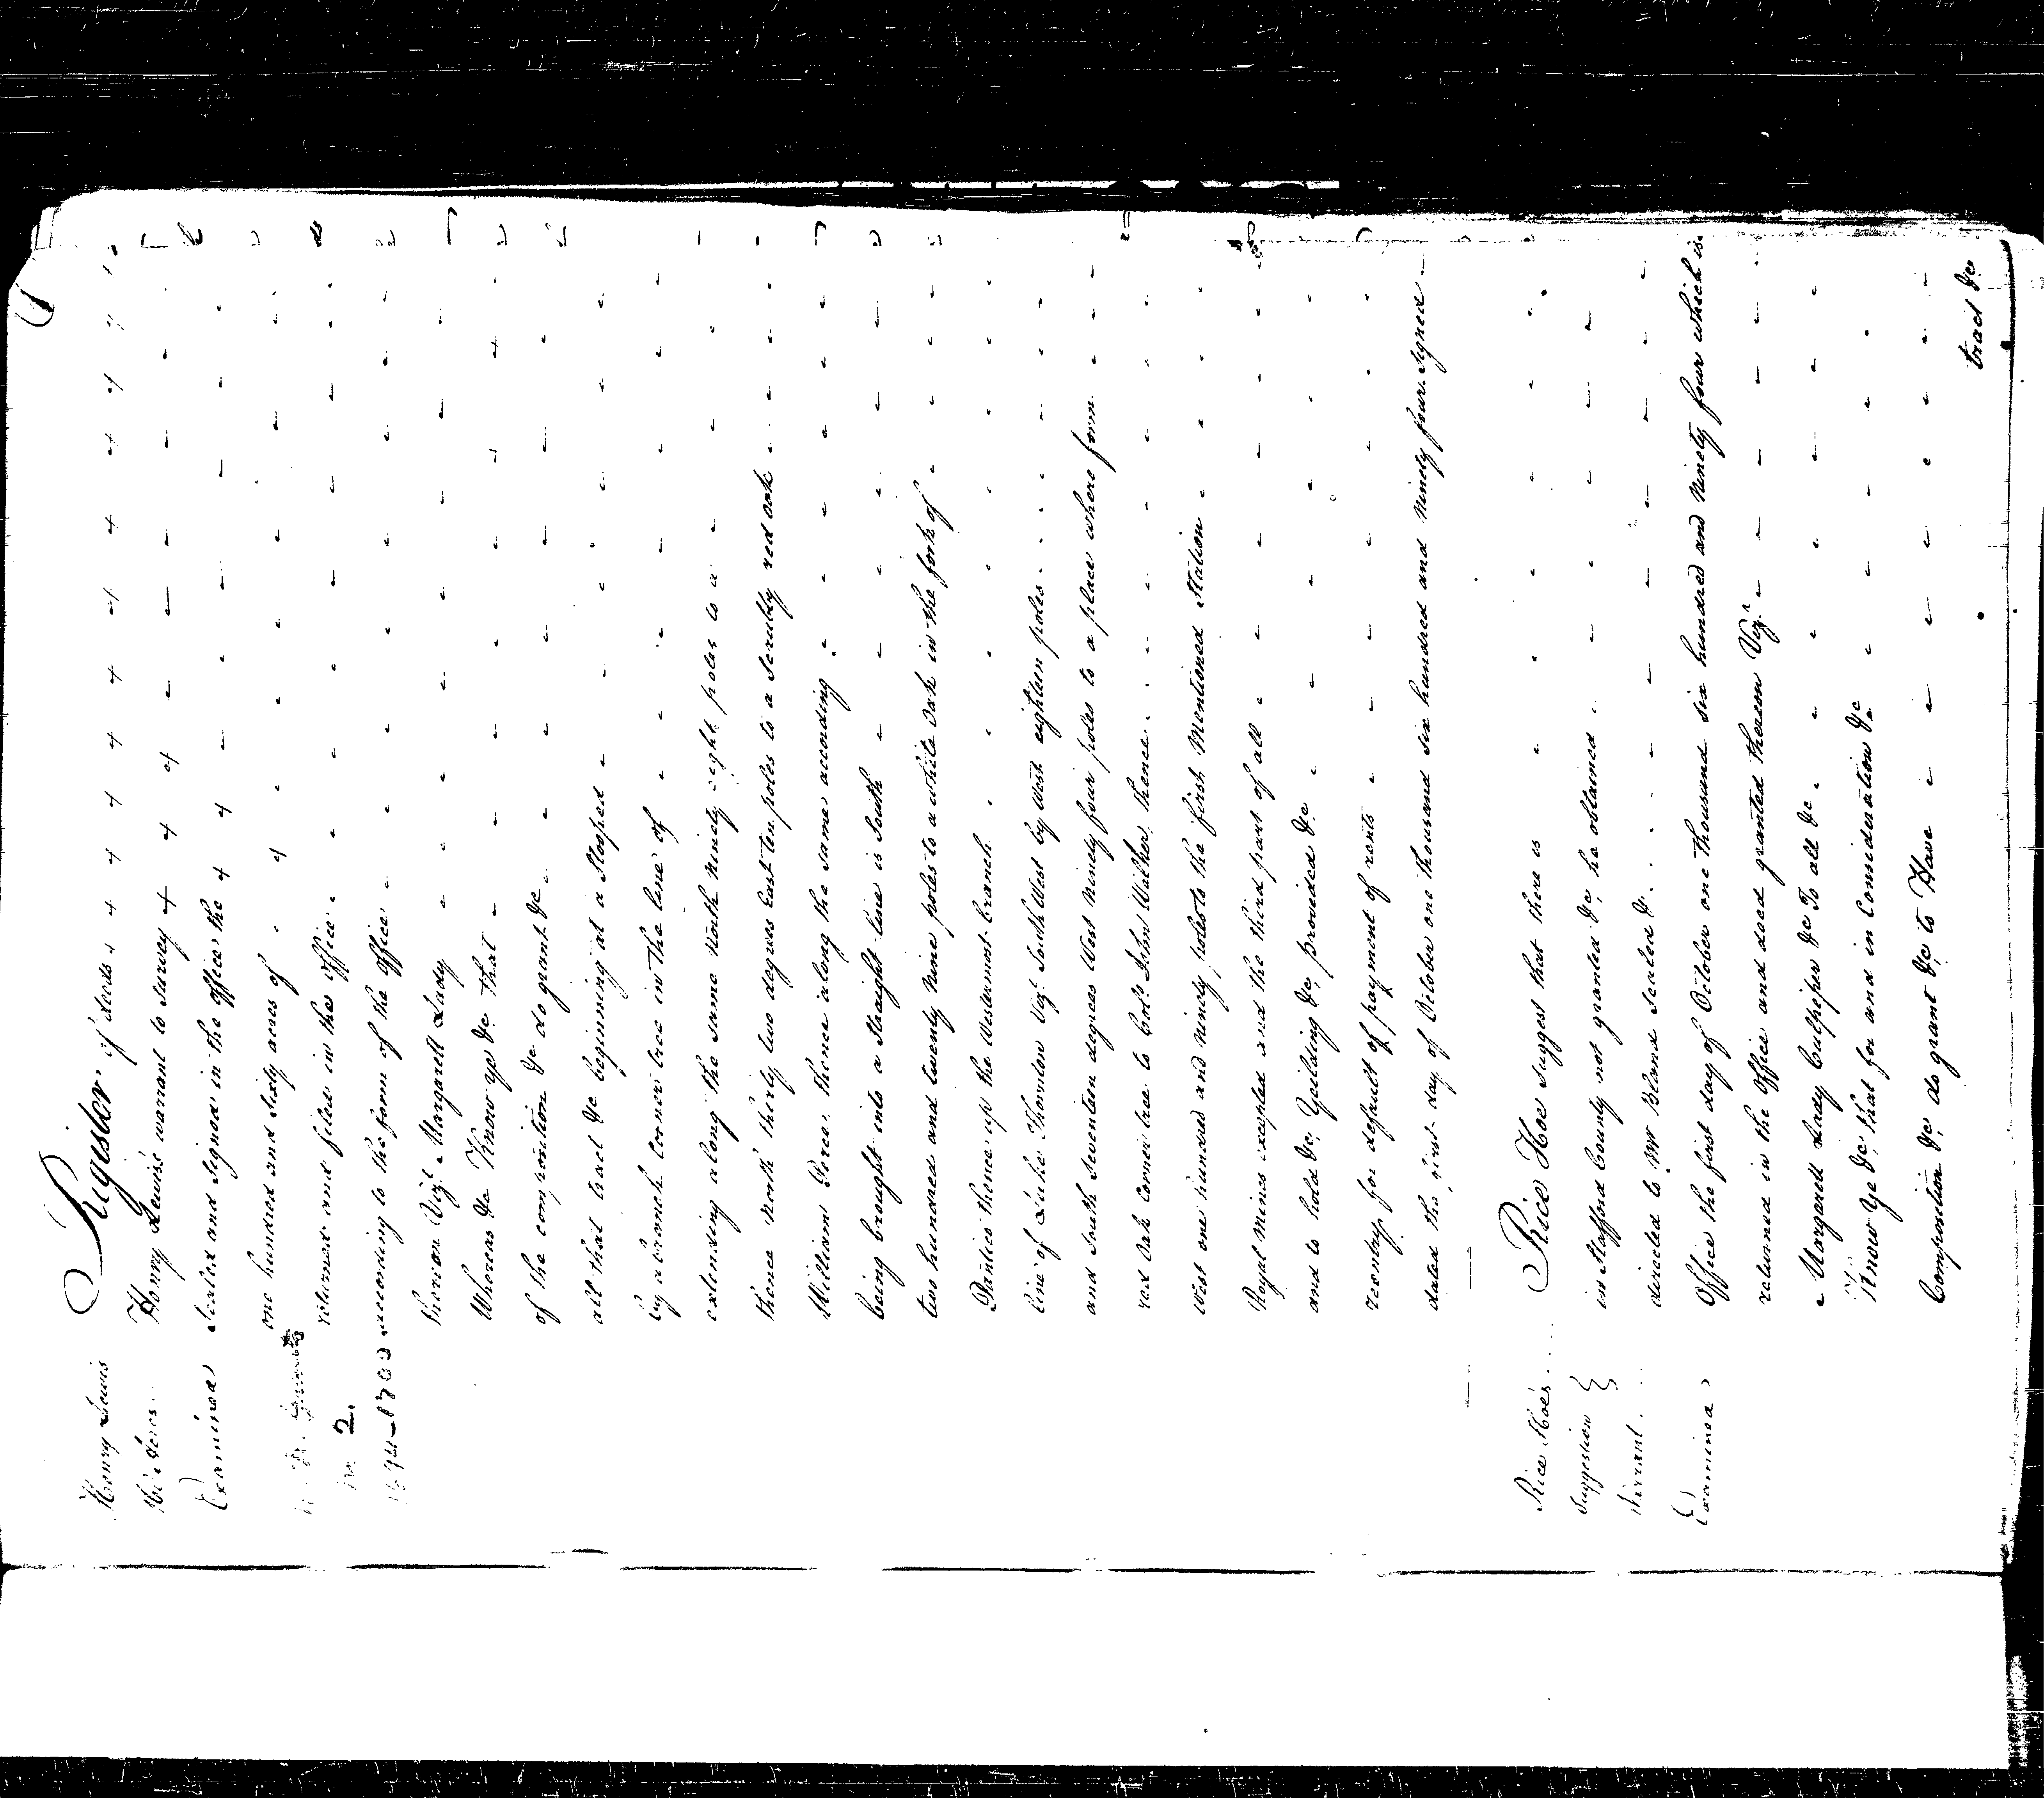 Register of deeds
Henry Lewis
Henry Lewis's warrant to survey
160 Acres
Examined
Sealed and signed in the office the
one hundred and sixty acres of
returned and filed in the office
No 2.
1694-1700
according to the form of the office
thereon Viz.t Margarett Lady
Whereas &c Know ye &c that
of the composition &c do grant &c
all that tract &c beginning at a Stooped
by a branch corner tree in the line of
extending along the same North ninety eight poles to a
thence North thirty two degrees East ten poles to a scrubby red oak
William Perce, thence along the same according
being brought into a straight line is South
two hundred and twenty nine poles to a white Oak in the fork of
thence up the Westernmost branch
line of Luke Thornton Viz.t South West by West eighteen poles
and South Seventeen degrees West ninety four poles to a place where form
red Oak corner tree to Col.o John Walker, thence
West one hundred and ninety poles to the first Mentioned Station
Royal Mines excepted and the third part of all
and to hold &c, Yeilding &c, provided &c
reentry for default of payment of rents
dated the first day of October one thousand six hundred and ninety four. Signed
Rice Hoe's
Rice Hoe suggest that there is
Suggestion
in Stafford County not granted &c, he obtained
Warrant
directed to Mr Bland Sealed &c
Examined
Office the first day of October one thousand six hundred and ninety four which is
returned in the Office and deed granted thereon Viz.t
Margarett Lady Culpeper &c To all &c
Know Ye &c, that for and in Consideration &c
Composition &c, do grant &c, to Have
tract &c